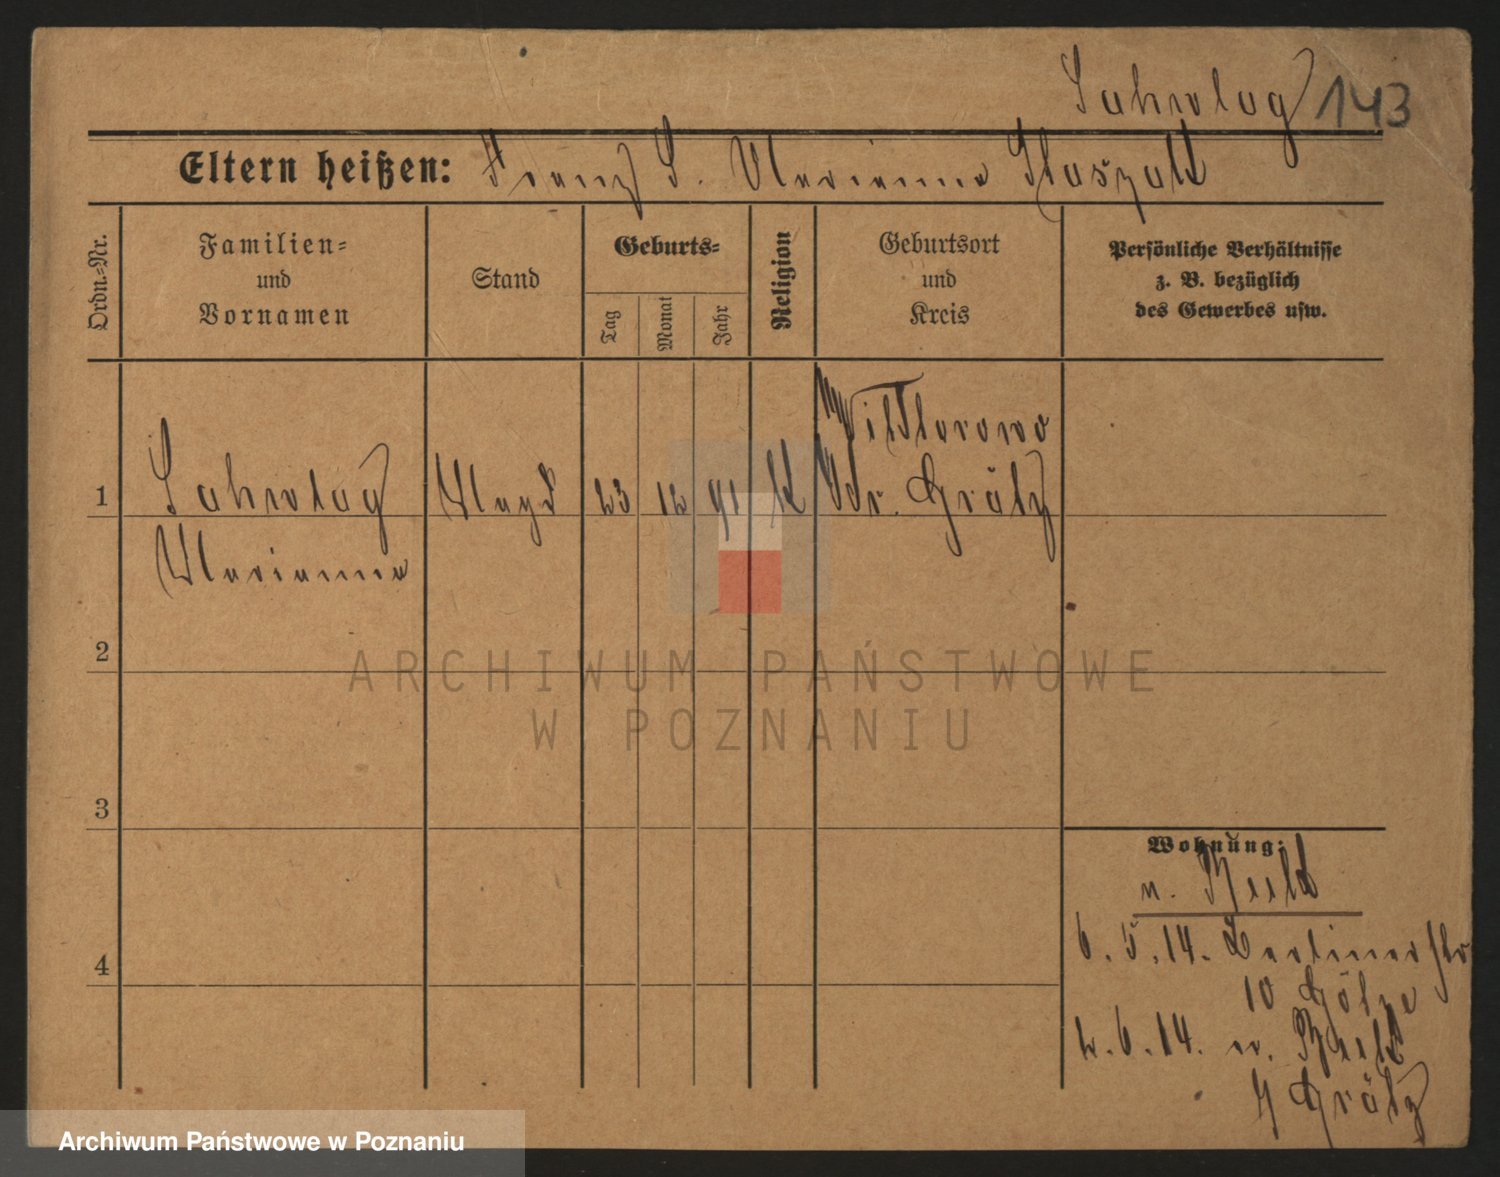 143
Eltern heißen: Franz S. Marianna
Ordn.-Nr.
Familien-
und
Vornamen
Stand
Geburts-
Tag
Monat
Jahr
Religion
Geburtsort
und
Kreis
Persönliche Verhältnisse
z. B. bezüglich
des Gewerbes usw.
1
Magd
23 12 91 K
Wiktorowo
Kr. Grätz
Marianna
2
3
4
Wohnung:
6.5.14. Berlinerstr
10
2.6.14. n.
Grätz
ARCHIWUM PAŃSTWOWE
W POZNANIU
Archiwum Państwowe w Poznaniu